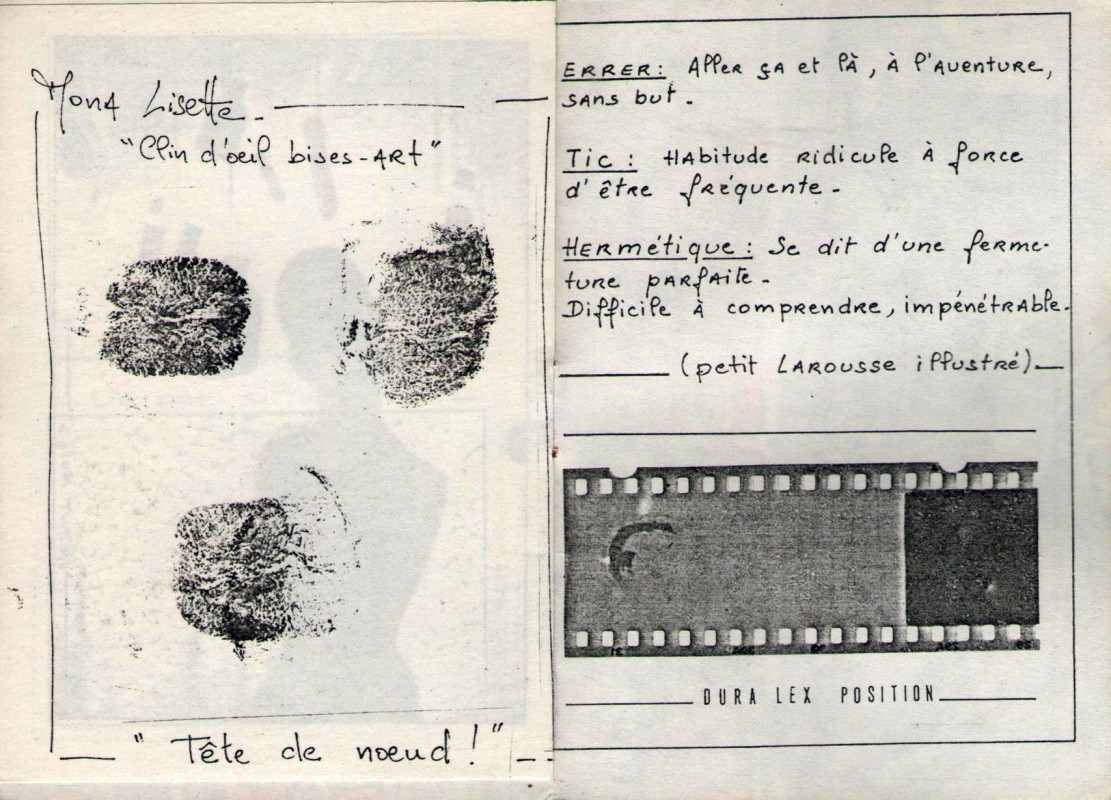 Mona Lisette.
"Clin d'oeil bises-ART"
"Tête de noeud !"
ERRER: Aller çA et là, à l'Aventure,
sans but.
Tic : HAbitude Ridicule À force
d'êtRe fréquente.
HeRmétique : Se dit d'une ferme-
ture pARfAite.
Difficile À comprendre, impénétrAble.
(petit LARousse illustRé)
DURA LEX POSITION